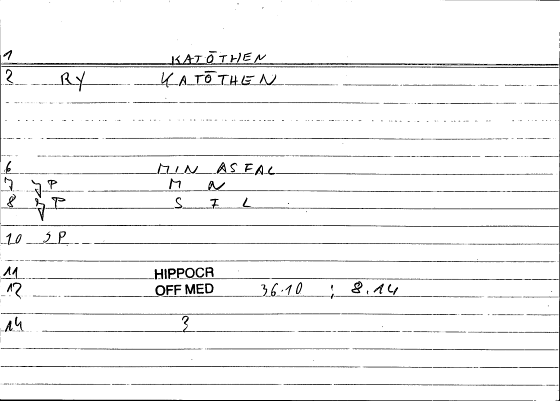 1 KATŌTHEN
2 RY KATŌTHEN
6 MIN ASFAL
7 JP M N
8 JP S F L
10 SP
11 HIPPOCR
12 OFF MED 36.10 ; 8.14
14 3